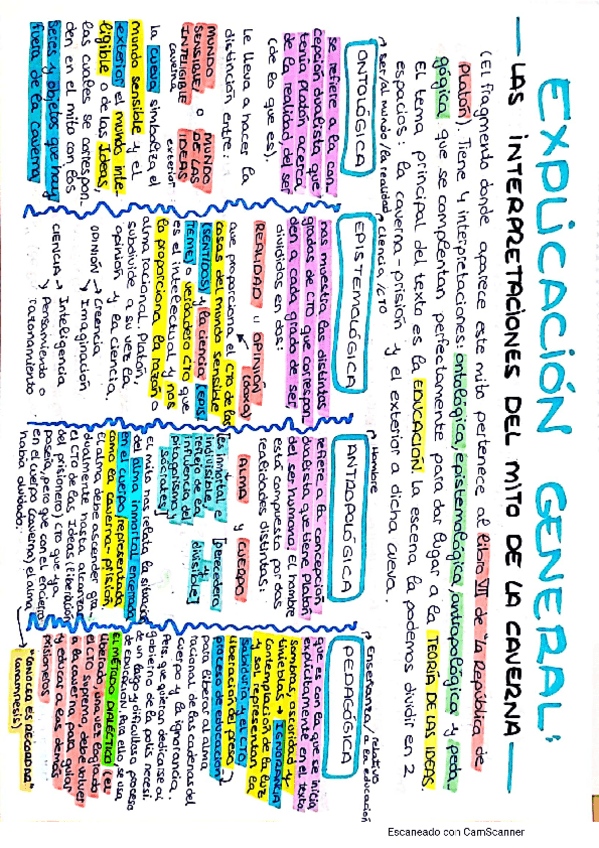 EXPLICACIÓN GENERAL:
— LAS INTERPRETACIONES DEL MITO DE LA CAVERNA —
(El fragmento donde aparece este mito pertenece al libro VII de "La República de
Platón). Tiene 4 interpretaciones: ontológica, epistemológica, antropológica y peda-
gógica que se complementan perfectamente para dar lugar a la TEORÍA DE LAS IDEAS.
El tema principal del texto es la EDUCACIÓN la escena la podemos dividir en 2
espacios: la caverna-prisión y el exterior a dicha cueva.
ser/al mundo/la realidad
ONTOLÓGICA
se refiere a la con-
cepción dualista que
tenía Platón acerca
de la realidad, del ser
(de lo que es).
Le lleva a hacer la
distinción entre:
MUNDO SENSIBLE/
MUNDO INTELIGIBLE O DE LAS IDEAS
caverna
exterior
la cueva simboliza el
mundo sensible y el
exterior el mundo inte-
ligible o de las Ideas,
las cuales se correspon-
den en el mito con los
seres y objetos que hay
fuera de la caverna
ciencia/cto
EPISTEMOLÓGICA
nos muestra los distintos
grados de CTO que correspon-
den a cada grado de ser,
divididos en dos:
REALIDAD u OPINIÓN
(doxa)
que proporciona el CTO de las
cosas del mundo sensible
(SENTIDOS) y la ciencia (EPIS-
TEME) o verdadero CTO que
es el intelectual y nos
lo proporciona la razón o
alma racional. Platón,
subdivide a su vez la
opinión y la ciencia.
OPINIÓN → Creencia
→ Imaginación
CIENCIA → Inteligencia
→ Pensamiento o
razonamiento
Hombre
ANTROPOLÓGICA
refiere a la concepción
dualista que tiene Platón
del ser humano. El hombre
está compuesto por dos
realidades distintas:
ALMA y CUERPO
[es inmortal e
indivisible,
reflejo de la
influencia del
pitagorismo y
[perecedero
y
divisible]
el mito nos relata la situación
del alma inmortal encerrada
en el cuerpo representada
como la caverna-prisión,
el alma debe ascender gra-
dualmente hasta alcanzar
el CTO de las Ideas (liberación
del prisionero) CTO que ya
poseía, pero que con el encierro
en el cuerpo (caverna) el alma
había olvidado.
Enseñanza/ relativo a la educación
PEDAGÓGICA
que es con la que se inicia
explícitamente en el texto.
sombras, oscuridad y
tinieblas → IGNORANCIA
Contemplación de la luz
y sol representan la
sabiduría y el CTO.
liberación del preso →
proceso de educación
para liberar al alma
racional de las cadenas del
cuerpo y la ignorancia.
Pers. que quieran dedicarse al
gobierno de la polis necesi-
tan largo y dificultoso proceso
de educación. Para ello se usa
EL MÉTODO DIALÉCTICA (el
liberado, una vez logrado
el CTO supremo, debe volver
a la caverna para guiar
y educar a los demás
prisioneros
"CONOCER ES RECORDAR"
(anamnesis)
Escaneado con CamScanner